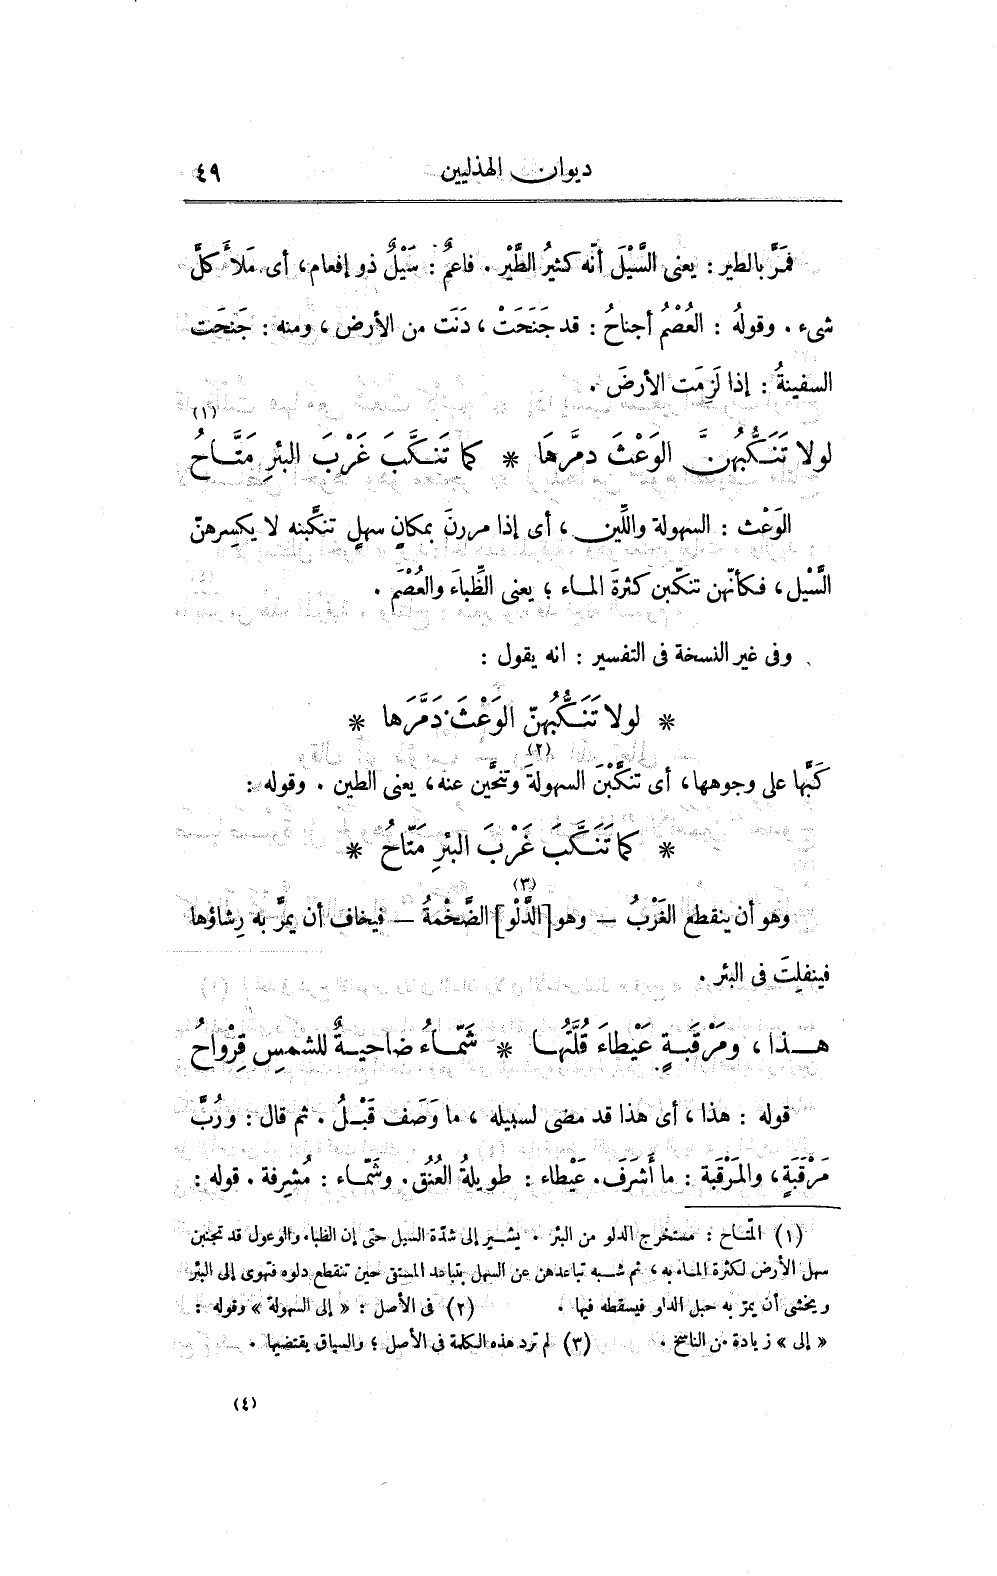 ديوان الهذليين ٤٩
فمَرَّ بالطير : يعنى السَّيْلَ أنّه كثيرُ الطَّيْر . فاعمٌ : سَيْلٌ ذو إفعام، أى مَلأَ كلَّ
شىء . وقولهُ : العُصْمُ أجناحُ : قد جَنَحَتْ ، دَنَت من الأرض ، ومنه : جَنحَت
السفينةُ : إذا لَزِمَت الأرضَ .
(١)
لولا تَنَكُّبُهنَّ الوَعْثَ دمَّرهَا * كما تَنكَّبَ غَرْبَ البئرِ مَتَّاحُ
الوَعْث : السهولة واللِّين ، أى إذا مررنَ بمكانٍ سهلٍ تنكَّبنه لا يكسِرهنّ
السَّيْل ، فكأنّهن تنكّبن كثرةَ الماء ؛ يعنى الظِّباءَ والعُصْمَ .
وفى غير النسخة فى التفسير : انه يقول :
* لولا تَنَكُّبُهنّ الوَعْثَ دَمَّرَها *
(٢)
كَبَّها على وجوهها، أى تنكَّبْنَ السهولةَ وتنحَّين عنه، يعنى الطين . وقوله :
* كما تَنَكَّبَ غَرْبَ البئرِ مَتّاحُ *
(٣)
وهو أن ينقطع الغَرْبُ — وهو [الدَّلْو] الضَّخْمةُ — فيخاف أن يمرَّ به رِشاؤها
فينفلِتَ فى البئر .
هذا ، ومَرْقَبةٍ عَيْطاءَ قُلَّتُها * شَمّاءُ ضاحيةٌ للشمسِ قِرْواحُ
قوله : هذا ، أى هذا قد مضى لسبيله ، ما وَصَف قَبْلُ . ثم قال : ورُبَّ
مَرْقَبَةٍ، والمَرْقَبة : ما أَشرَفَ. عَيْطاء : طويلةُ العُنُق. وشَمّاء : مُشرِفة . قوله :
(١) المتّاح : مستخرج الدلو من البئر . يشير إلى شدّة السيل حتى إن الظباء والوعول قد تجنبن
سهل الأرض لكثرة الماء به ، ثم شبه تباعدهن عن السهل بتباعد المستقى حين تنقطع دلوه فتهوى إلى البئر
ويخشى أن يمرّ به حبل الدلو فيسقطه فيها . (٢) فى الأصل : « إلى السهولة » وقوله :
« إلى » زيادة من الناسخ . (٣) لم ترد هذه الكلمة فى الأصل ؛ والسياق يقتضيها .
(٤)